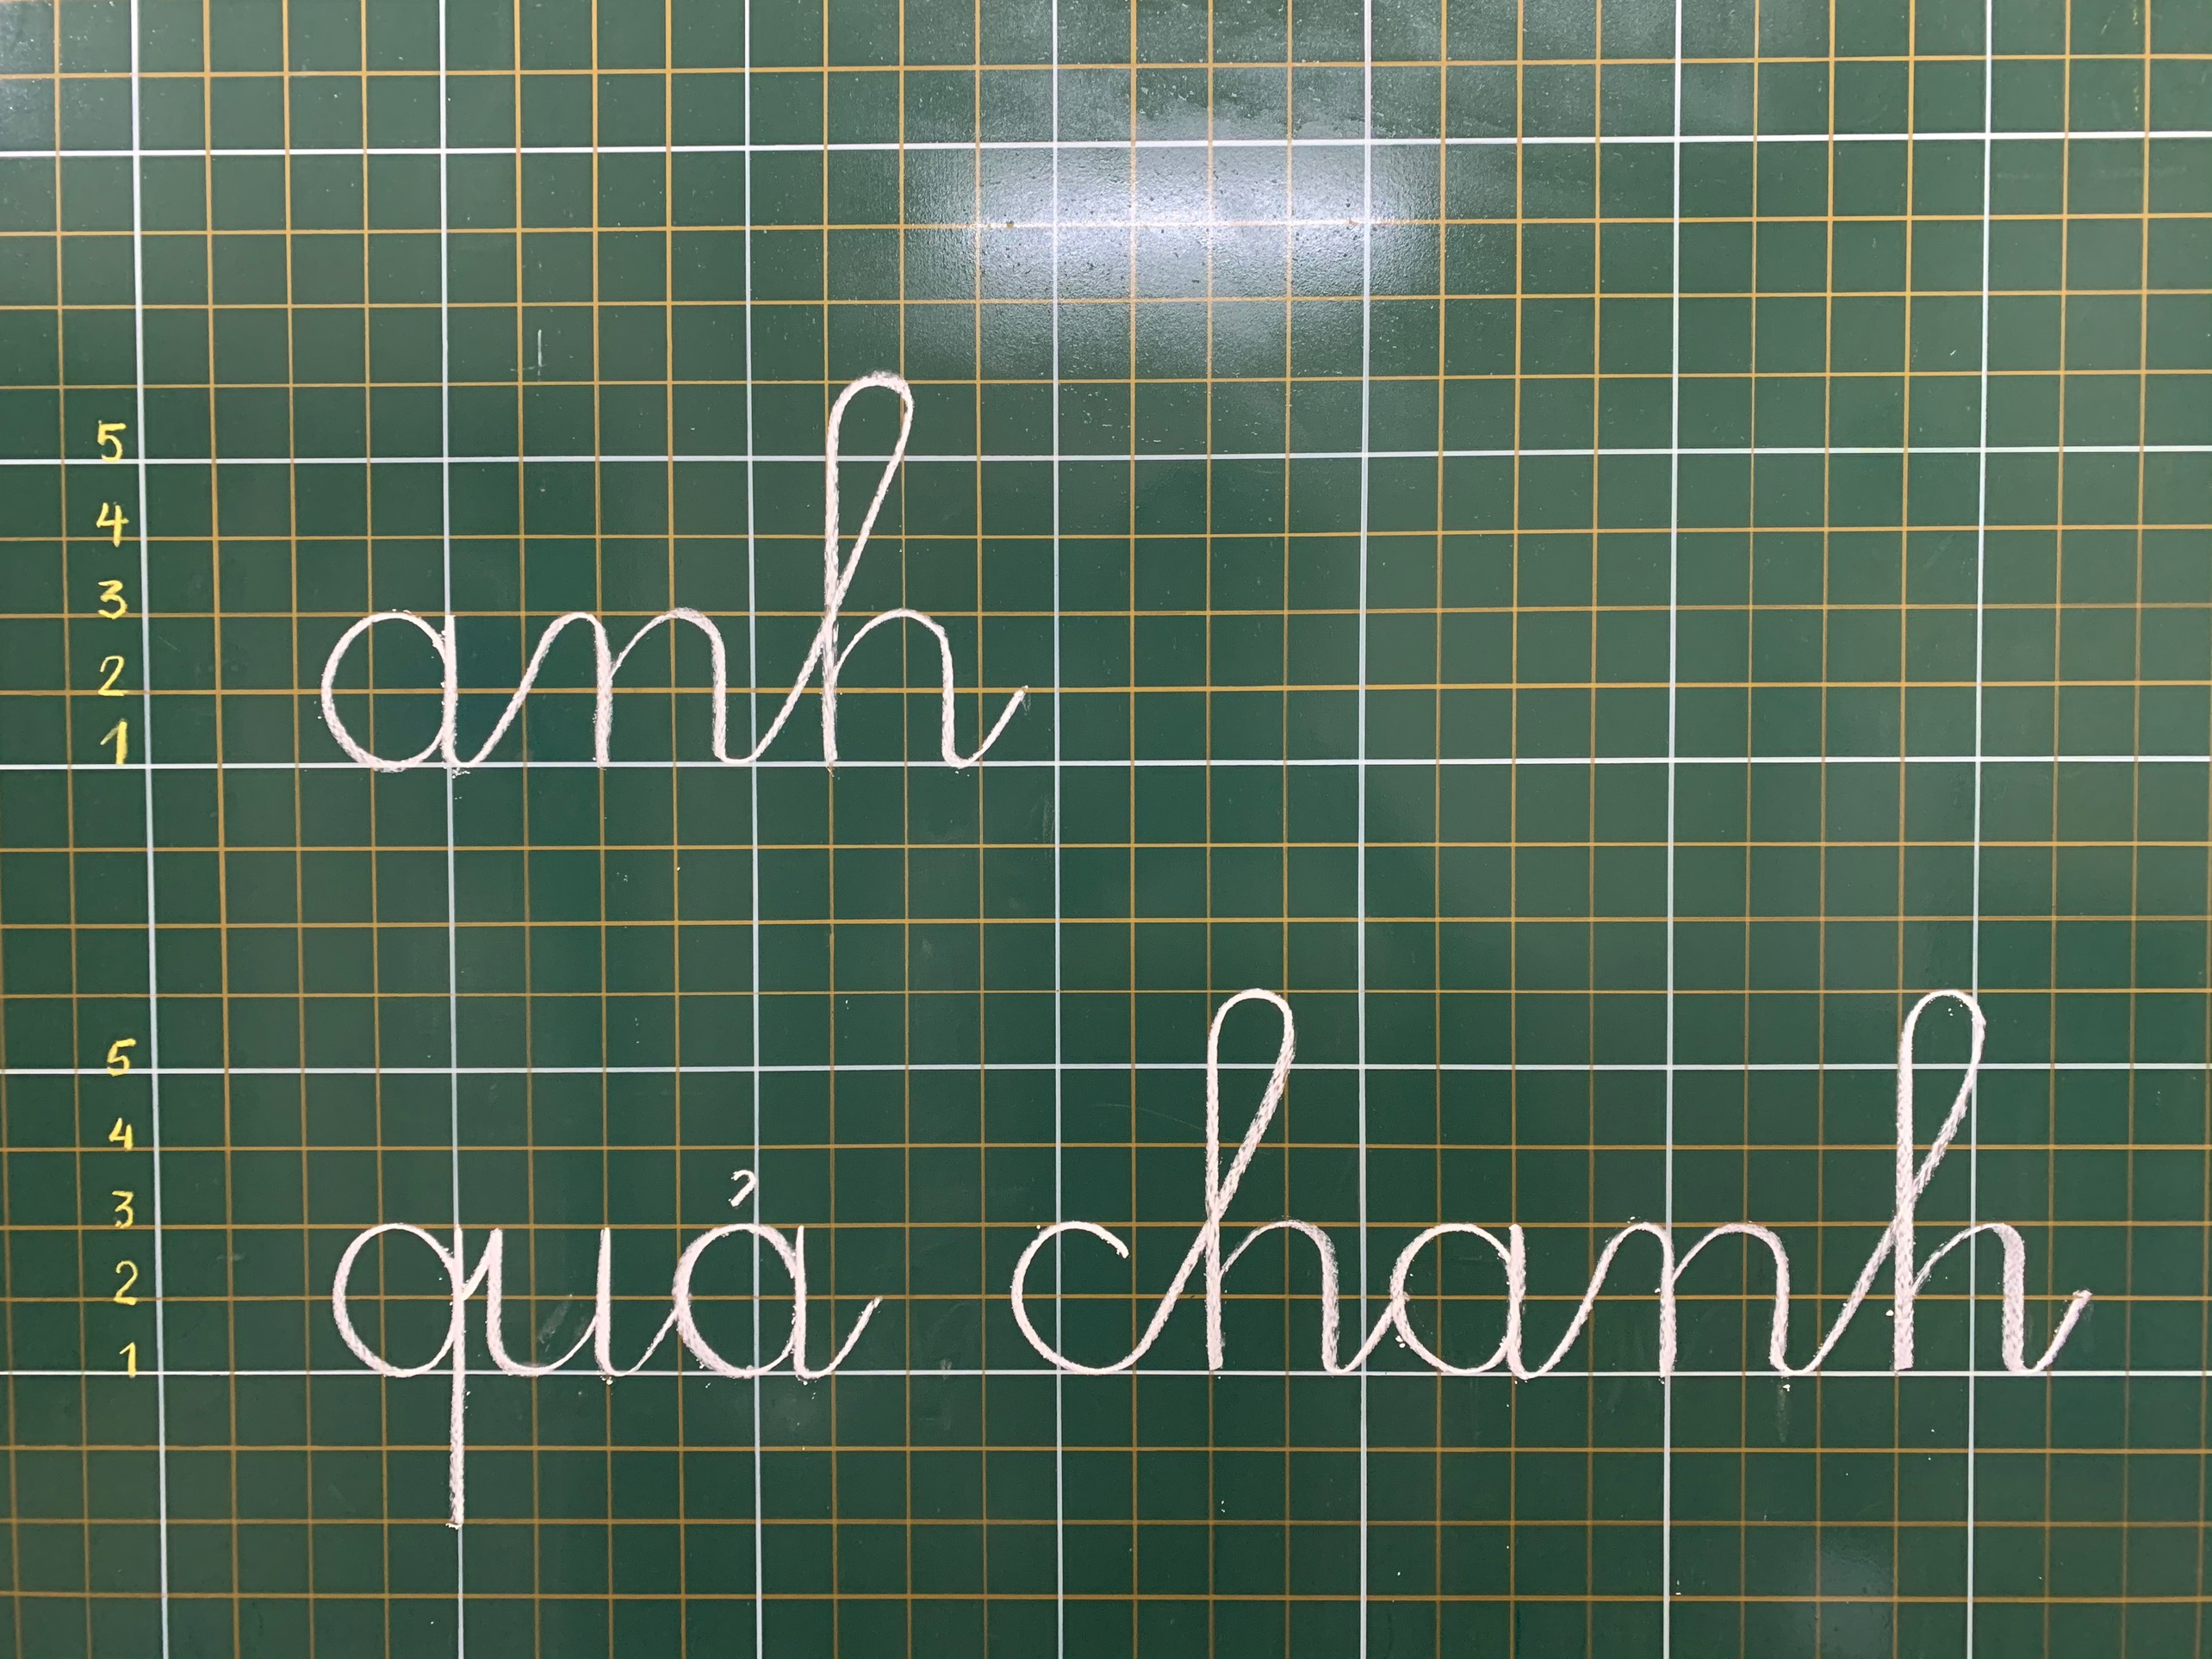 5
4
3
2
1
anh
5
4
3
2
1
quả chanh